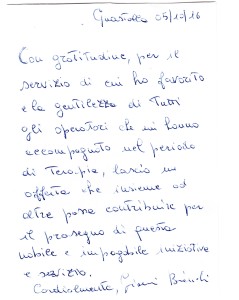 Guastalla 05/12/16
Con gratitudine, per il
servizio di cui ho favorito
e la gentilezza di Tutti
gli operatori che mi hanno
accompagnato nel periodo
di Terapia, lascio un
offerta che insieme ad
altre possa contribuire per
il prosegno di questa
nobile e impagabile iniziativa
e servizio.
Cordialmente,